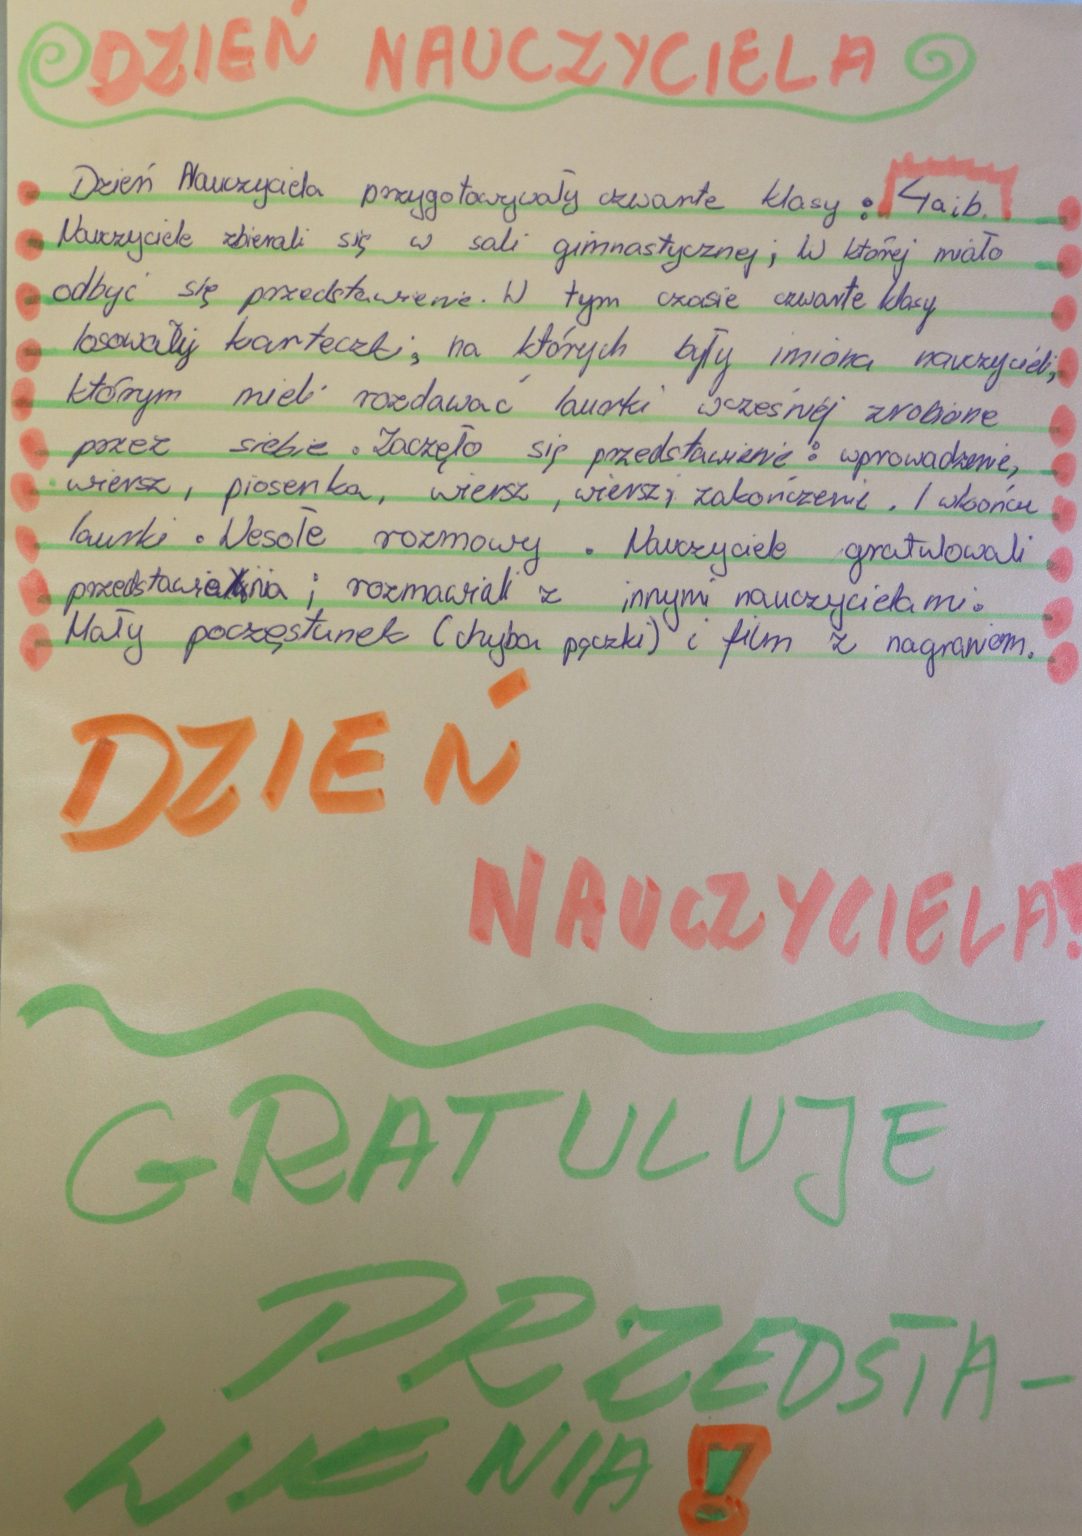 DZIEŃ NAUCZYCIELA
Dzień Nauczyciela przygotowywały czwarte klasy: 4a i b.
Nauczyciele zbierali się w sali gimnastycznej; W której miało
odbyć się przedstawienie. W tym czasie czwarte klasy
losowały karteczki, na których były imiona nauczycieli,
którym mieli rozdawać laurki wcześniej zrobione
przez siebie. Zaczęło się przedstawienie: wprowadzenie,
wiersz, piosenka, wiersz, wiersz i zakończenie. I wkońcu
laurki. Wesołe rozmowy. Nauczyciele gratulowali
przedstawienia i rozmawiali z innymi nauczycielami.
Mały poczęstunek (chyba pączki) i film z nagraniem.
DZIEŃ
NAUCZYCIELA!
GRATULUJE
PRZEDSTA-
WIENIA!